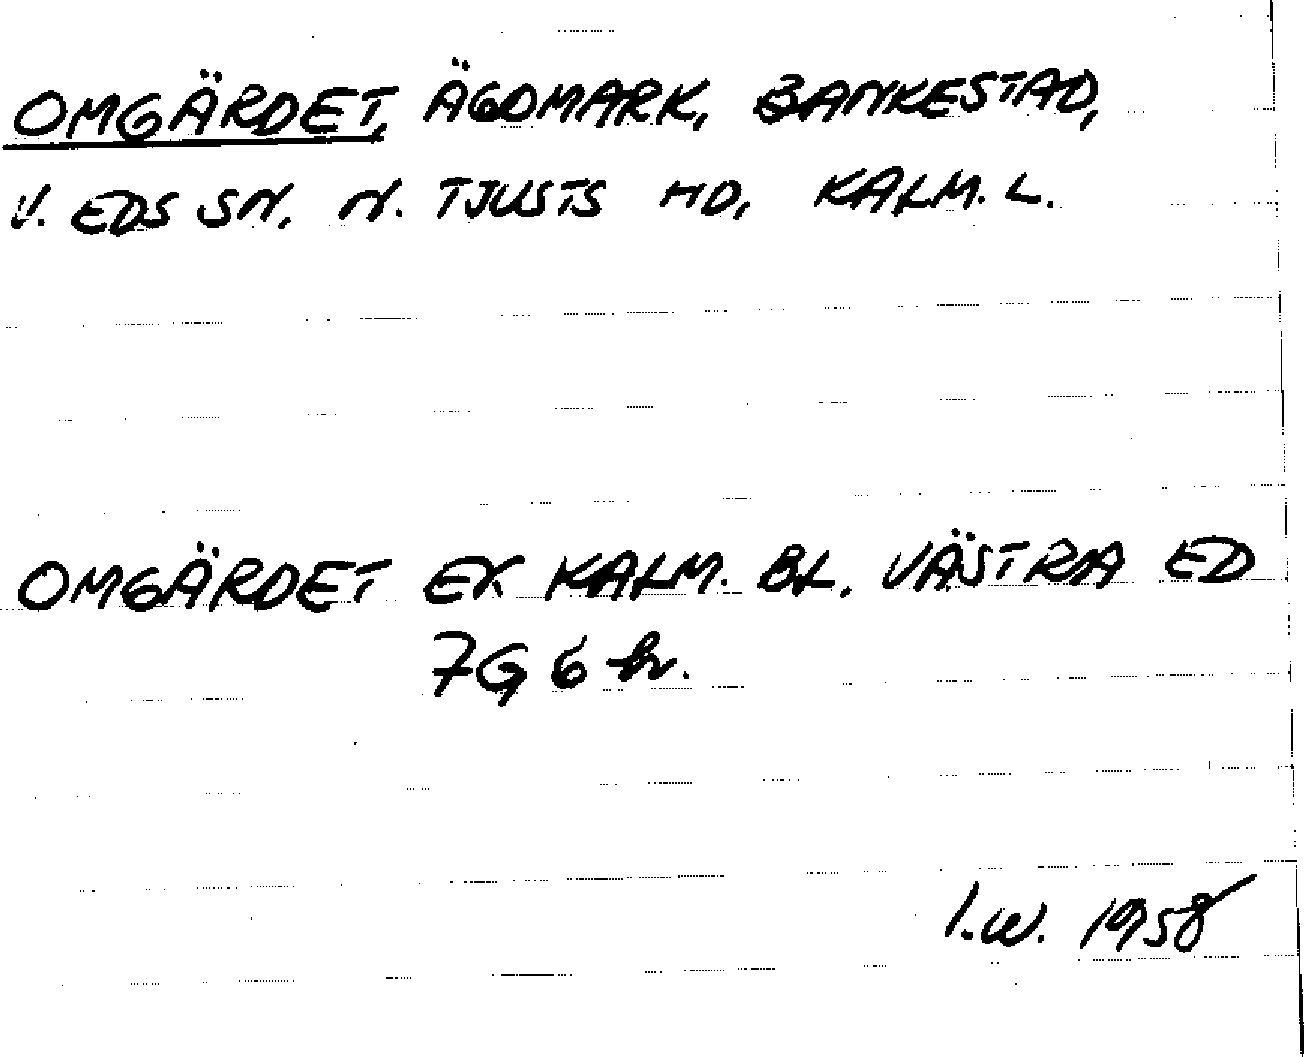 OMGÄRDET, ÄGOMARK, BANKESTAD,
V. EDS SN. N. TJUSTS HD, KALM. L.
OMGÄRDET EK KALM. BL. VÄSTRA ED
7G 6 h.
I.W. 1958